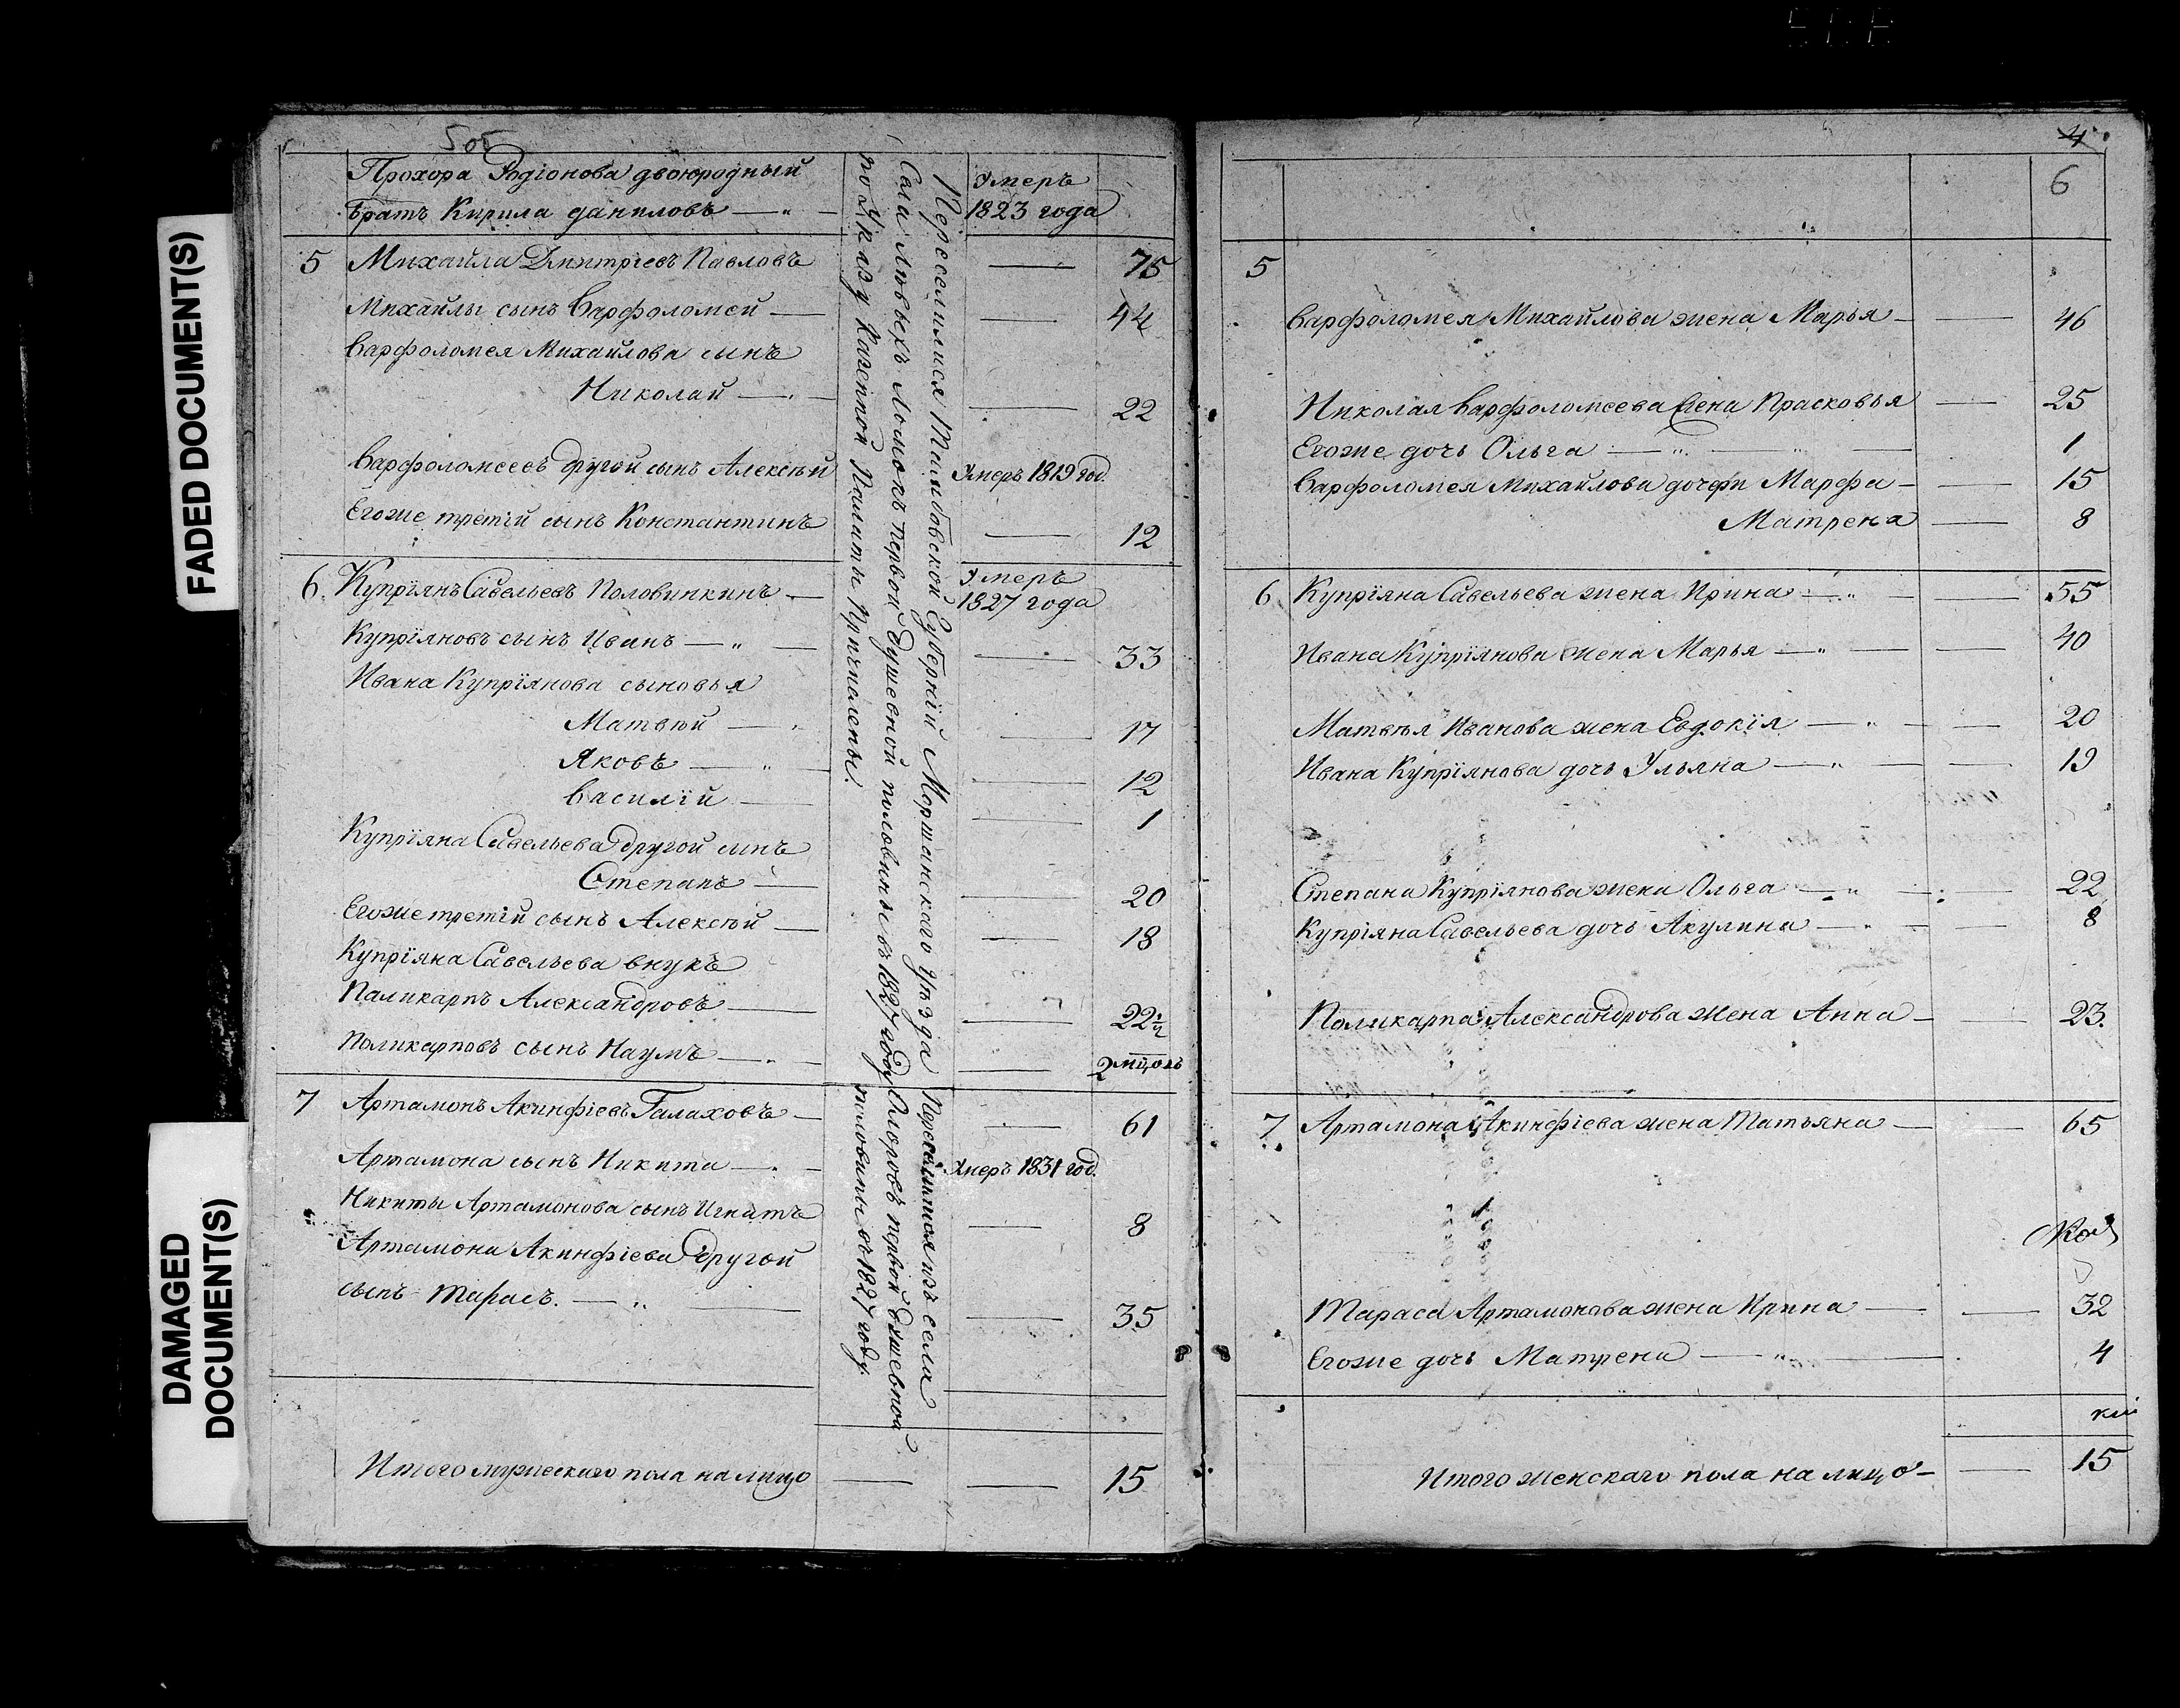 505
Прохора Родіонова двоюродный
братъ Кирила даниловъ
Умеръ
1823 года
5 Михайла Дмитріевъ Павловъ 75
Михайлы сынъ Варфоломей 44
Варфоломея Михайлова сынъ
Николай 22
Варфоломеевъ другой сынъ Алексѣй Умеръ 1819 год.
Егоже третій сынъ Константинъ 12
6. Купріянъ Савельевъ Половинкинъ
Умеръ
1827 года
Купріяновъ сынъ Иванъ 33
Ивана Купріянова сыновья
Матвѣй 17
Яковъ 12
Василій 1
Купріяна Савельева другой сынъ
Степанъ 20
Егоже третій сынъ Алексѣй 18
Купріяна Савельева внукъ
Паликарпъ Александровъ 22
Поликарповъ сынъ Наумъ 2
7 Артамонъ Акинфіевъ Галаховъ 61
Артамона сынъ Никита Умеръ 1831 год.
Никиты Артамонова сынъ Игнатъ 8
Артамона Акинфіева другой
сынъ Тарасъ. 35
Итого мужескаго пола на лицо 15
Переселился Тамбовской Губерній Моршанскаго уѣзда
Села Ломокъ первой душевной половины въ 1827 году
по Указу Казенной Палаты Причислены.
Переселился изъ села
первой душевной
половины въ 1827 году.
4
6
5
Варфоломея Михайлова жена Марья 46
Николая Варфоломеева жена Прасковья 25
Егоже дочь Ольга 1
Варфоломея Михайлова дочери Марфа 15
Матрена 8
6 Купріяна Савельева жена Ирина 55
Ивана Купріянова жена Марья 40
Матвѣя Иванова жена Евдокія 20
Ивана Купріянова дочь Ульяна 19
Степана Купріянова жена Ольга 22
Купріяна Савельева дочь Акулина 8
Поликарпа Александрова жена Анна 23.
7 Артамона Акинфіева жена Татьяна 65
Тараса Артамонова жена Ирина 32
Егоже дочь Матрена 4
Итого женскаго пола на лицо 15
FADED DOCUMENT(S)
DAMAGED
DOCUMENT(S)